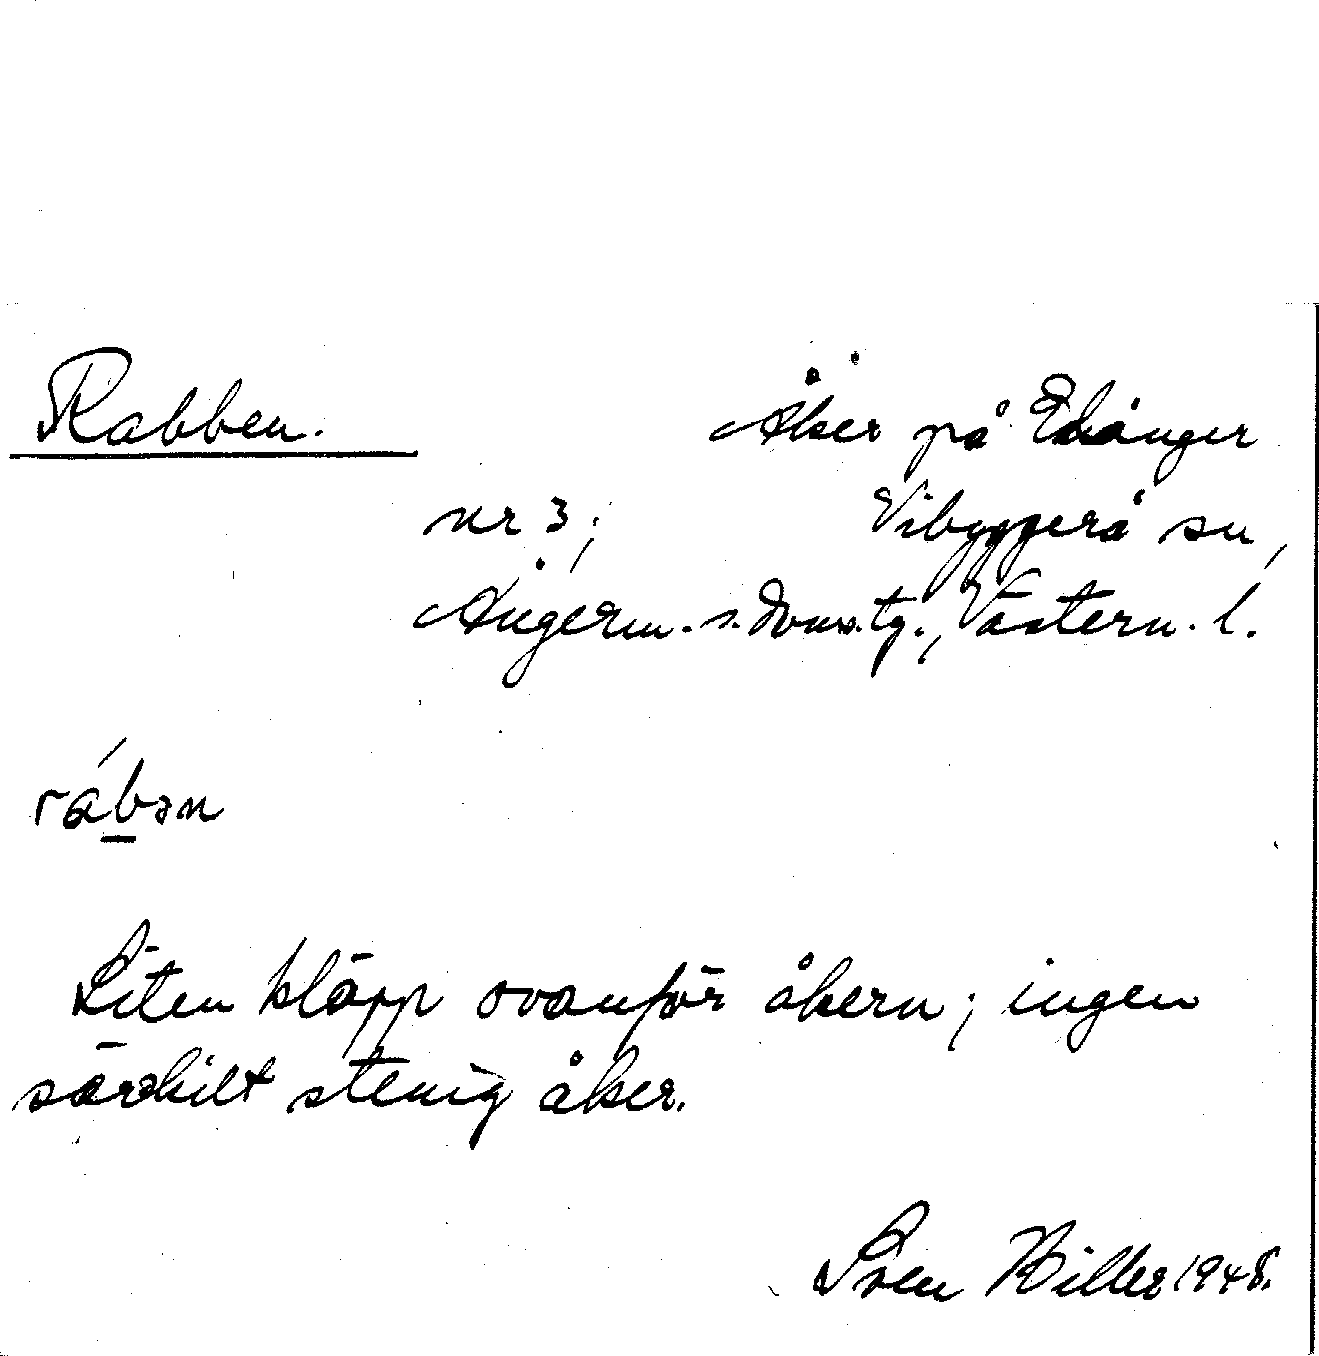 Rabben. Åker på Edånger
nr 3; Vibyggerå sn,
Ångerm. s. doms. tg., Västern. l.
rábən
Liten kläpp ovanför åkern; ingen
särskilt stenig åker.
Sven Hiller 1948.